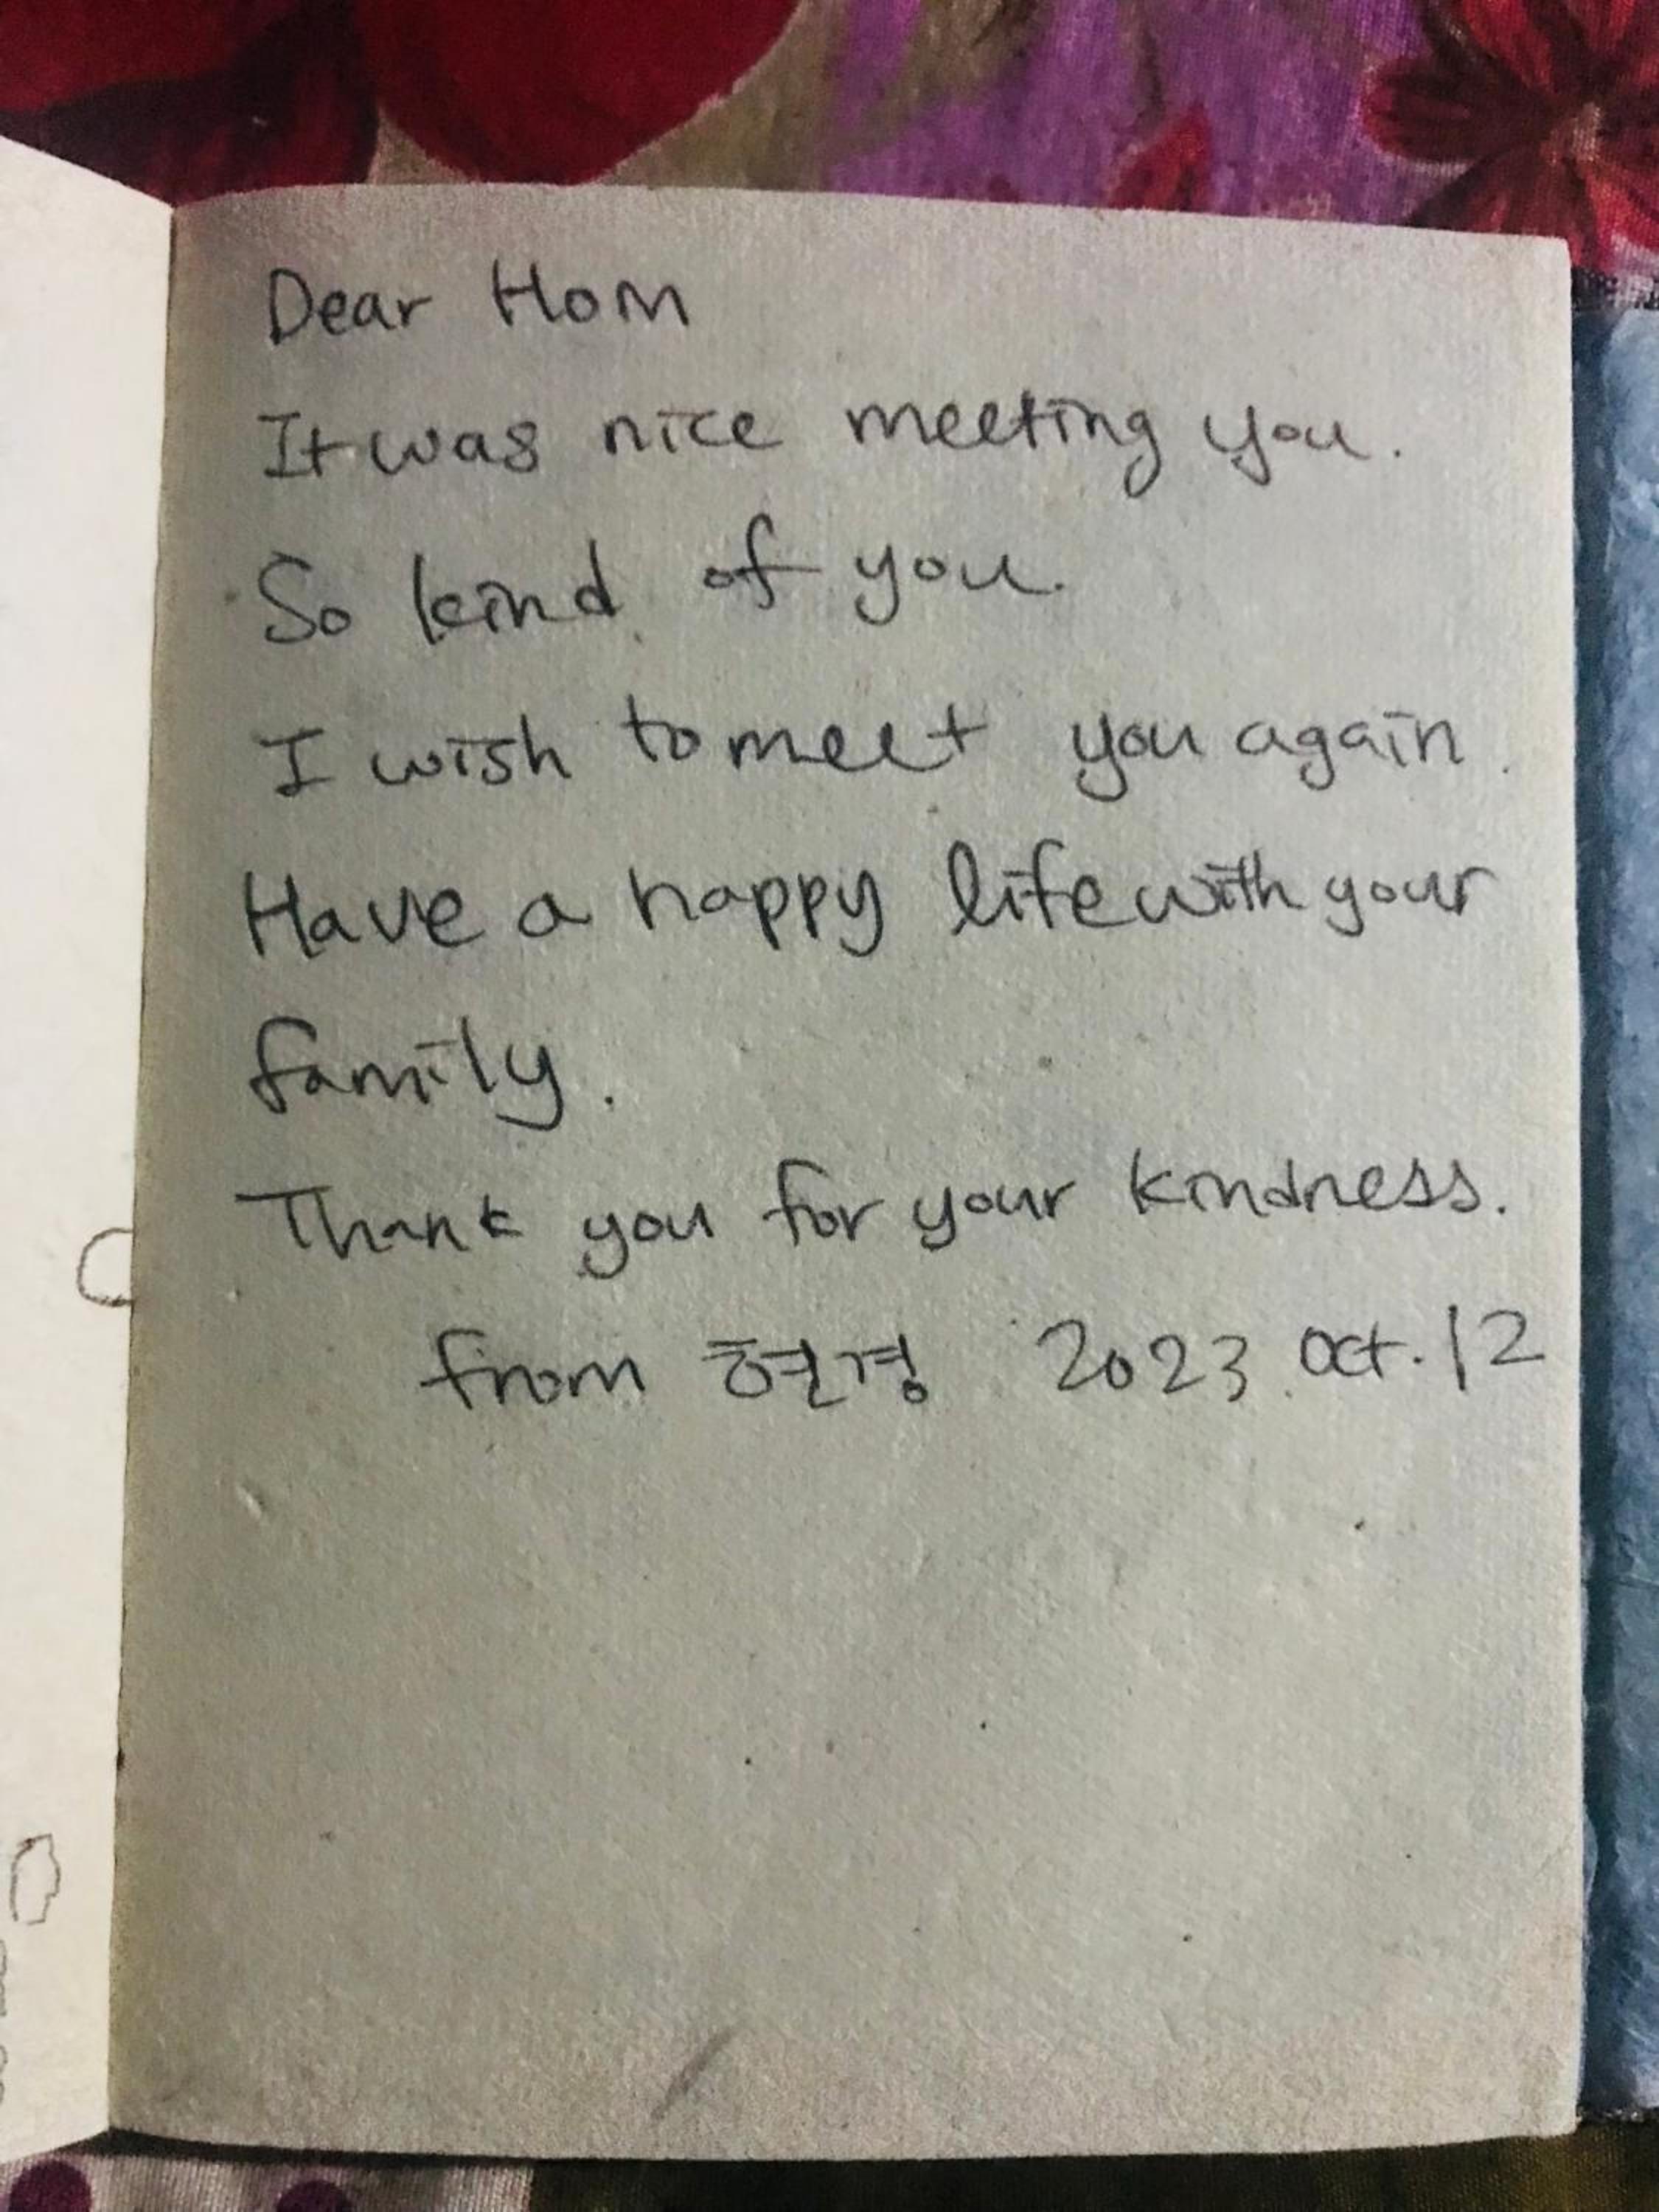 Dear Hom
It was nice meeting you.
So kind of you.
I wish to meet you again.
Have a happy life with your
family.
Thank you for your kindness.
from 현경 2023. Oct. 12